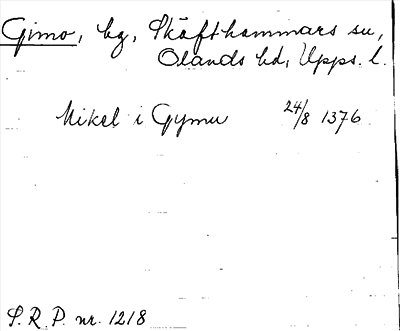 Gimo, bg, Skäfthammars sn,
Olands hd, Upps. l.
Mikel i Gymu 24/8 1376
S.R.P. nr. 1218